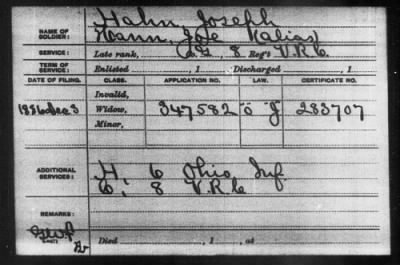 NAME OF SOLDIER: Hahn, Joseph
Hann, Joe (alias)
SERVICE: Late rank, Co. G, 8 Reg't V.R.C.
TERM OF SERVICE: Enlisted , 1 Discharged , 1
DATE OF FILING. CLASS. APPLICATION NO. LAW. CERTIFICATE NO.
Invalid,
1886 Dec 3 Widow, 347582 283707
Minor,
ADDITIONAL SERVICES: H. 6 Ohio Inf.
8 V.R.C
REMARKS:
Died , 1 , at